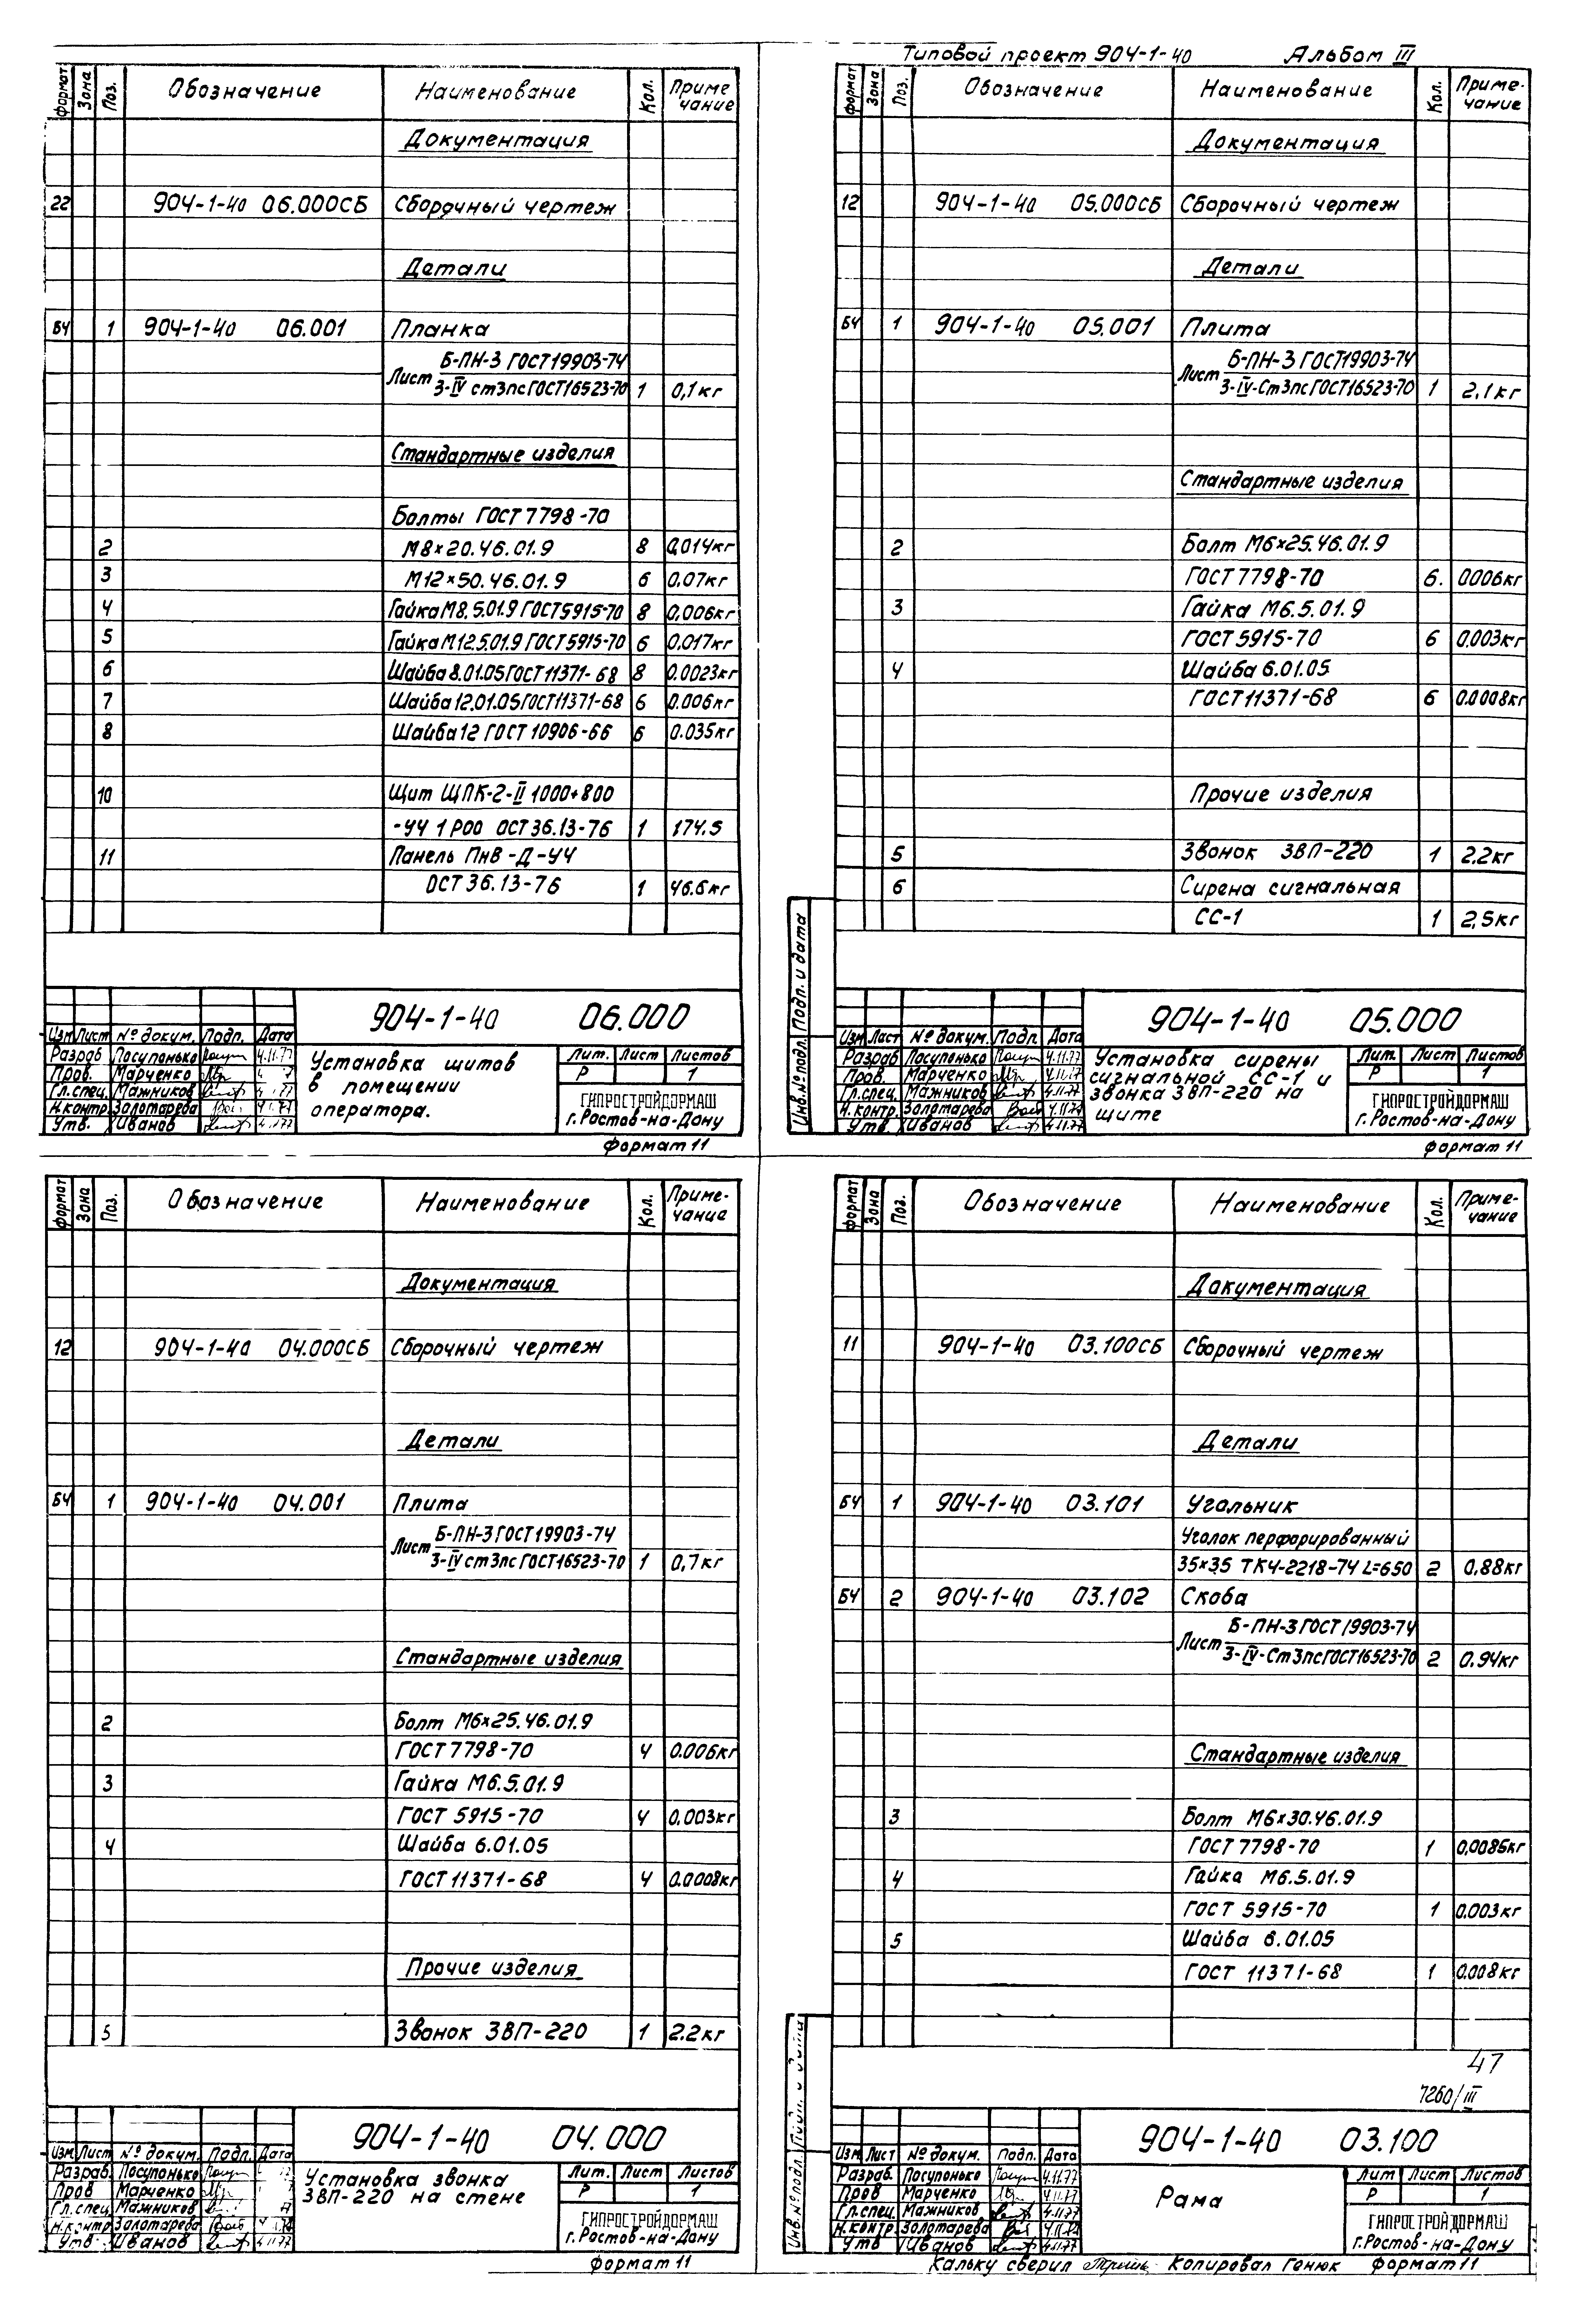 Типовой проект 904-1-40 Альбом III
формат Зона Поз. Обозначение Наименование Кол. Приме чание
Документация
22 904-1-40 06.000СБ Сборочный чертеж
Детали
БЧ 1 904-1-40 06.001 Планка
Лист Б-ПН-3 ГОСТ19903-74
3-IV ст3пс ГОСТ16523-70 1 0,1кг
Стандартные изделия
Болты ГОСТ 7798-70
2 М8×20.46.01.9 8 0,014кг
3 М12×50.46.01.9 6 0,07кг
4 Гайка М8.5.01.9 ГОСТ5915-70 8 0,006кг
5 Гайка М12.5.01.9 ГОСТ5915-70 6 0.017кг
6 Шайба 8.01.05 ГОСТ11371-68 8 0.0023кг
7 Шайба 12.01.05 ГОСТ11371-68 6 0.006кг
8 Шайба 12 ГОСТ 10906-66 6 0.035кг
10 Щит ЩПК-2-II 1000+800
-УЧ 1Р00 ОСТ 36.13-76 1 174.5
11 Панель ПнВ-Д-УЧ
ОСТ 36.13-76 1 46.6кг
904-1-40 06.000
Изм Лист № докум. Подп. Дата
Разраб Посупонько 4.11.77
Пров. Марченко
Гл.спец. Мажников
Н.контр. Золотарева
Утв. Иванов
Установка щитов
в помещении
оператора.
Лит. Лист Листов
Р 1
ГИПРОСТРОЙДОРМАШ
г.Ростов-на-Дону
формат 11
формат Зона Поз. Обозначение Наименование Кол. Приме- чание
Документация
12 904-1-40 05.000СБ Сборочный чертеж
Детали
БЧ 1 904-1-40 05.001 Плита
Лист Б-ПН-3 ГОСТ19903-74
3-IV-Ст3пс ГОСТ16523-70 1 2,1кг
Стандартные изделия
2 Болт М6×25.46.01.9
ГОСТ 7798-70 6. 0006кг
3 Гайка М6.5.01.9
ГОСТ 5915-70 6 0.003кг
4 Шайба 6.01.05
ГОСТ11371-68 6 0.0008кг
Прочие изделия
5 Звонок ЗВП-220 1 2.2кг
6 Сирена сигнальная
СС-1 1 2,5кг
Инв.№подл. Подп. и дата
904-1-40 05.000
Изм Лист № докум. Подп. Дата
Разраб Посупонько 4.11.77
Пров. Марченко 4.11.77
Гл.спец. Мажников 4.11.77
Н.контр. Золотарева 4.11.77
Утв. Иванов 4.11.77
Установка сирены
сигнальной СС-1 и
звонка ЗВП-220 на
щите
Лит. Лист Листов
Р 1
ГИПРОСТРОЙДОРМАШ
г.Ростов-на-Дону
формат 11
формат Зона Поз. Обозначение Наименование Кол. Приме- чание
Документация
12 904-1-40 04.000СБ Сборочный чертеж
Детали
БЧ 1 904-1-40 04.001 Плита
Лист Б-ПН-3 ГОСТ19903-74
3-IV ст3пс ГОСТ16523-70 1 0,7кг
Стандартные изделия
2 Болт М6×25.46.01.9
ГОСТ 7798-70 4 0.006кг
3 Гайка М6.5.01.9
ГОСТ 5915-70 4 0.003кг
4 Шайба 6.01.05
ГОСТ 11371-68 4 0.0008кг
Прочие изделия
5 Звонок ЗВП-220 1 2.2кг
904-1-40 04.000
Изм Лист № докум. Подп. Дата
Разраб. Посупонько
Пров Марченко
Гл.спец. Мажников
Н.контр Золотарева
Утв. Иванов 4.11.77
Установка звонка
ЗВП-220 на стене
Лит. Лист Листов
Р 1
ГИПРОСТРОЙДОРМАШ
г.Ростов-на-Дону
формат 11
формат Зона Поз. Обозначение Наименование Кол. Приме- чание
Документация
11 904-1-40 03.100СБ Сборочный чертеж
Детали
БЧ 1 904-1-40 03.101 Угольник
Уголок перфорированный
35×35 ТК4-2218-74 L=650 2 0,88кг
БЧ 2 904-1-40 03.102 Скоба
Лист Б-ПН-3 ГОСТ19903-74
3-IV-Ст3пс ГОСТ16523-70 2 0.94кг
Стандартные изделия
3 Болт М6×30.46.01.9
ГОСТ 7798-70 1 0,0085кг
4 Гайка М6.5.01.9
ГОСТ 5915-70 1 0.003кг
5 Шайба 6.01.05
ГОСТ 11371-68 1 0.008кг
47
7260/III
Инв.№подл.
904-1-40 03.100
Изм Лист № докум. Подп. Дата
Разраб. Посупонько 4.11.77
Пров Марченко 4.11.77
Гл.спец. Мажников 4.11.77
Н.контр. Золотарева
Утв Иванов 4.11.77
Рама
Лит Лист Листов
Р 1
ГИПРОСТРОЙДОРМАШ
г.Ростов-на-Дону
Кальку сверил Копировал Генюк формат 11